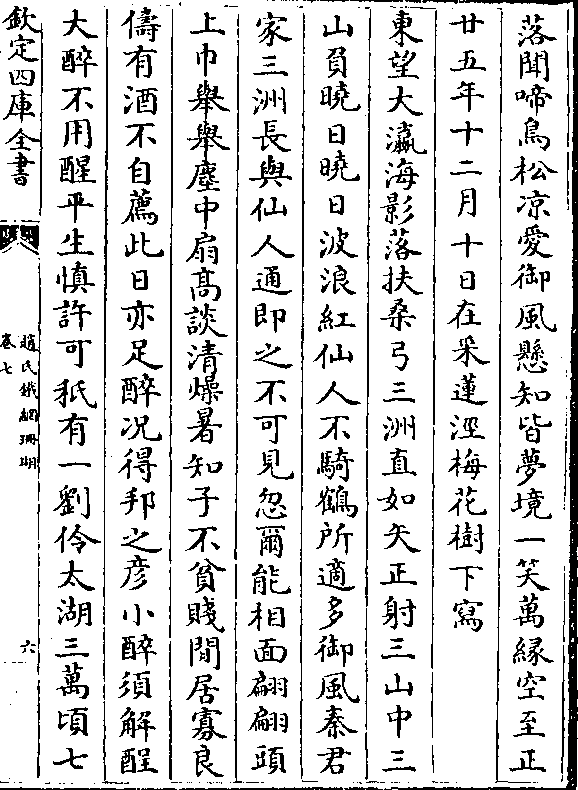 落聞啼鳥松凉愛御風懸知皆夢境一笑萬緣空至正
廿五年十二月十日在采蓮涇梅花樹下寫
東望大瀛海影落扶桑弓三洲直如矢正射三山中三
山負曉日曉日波浪紅仙人不騎鶴所適多御風秦君
家三洲長與仙人通即之不可見忽爾能相面翩翩頭
上巾舉舉麈中扇髙談清燥暑知子不貧賤閒居寡良
儔有酒不自薦此日亦足醉况得邦之彦小醉須解酲
大醉不用醒平生慎許可秖有一劉伶太湖三萬頃七
欽定四庫全書
趙氏鐵網珊瑚
卷七
六